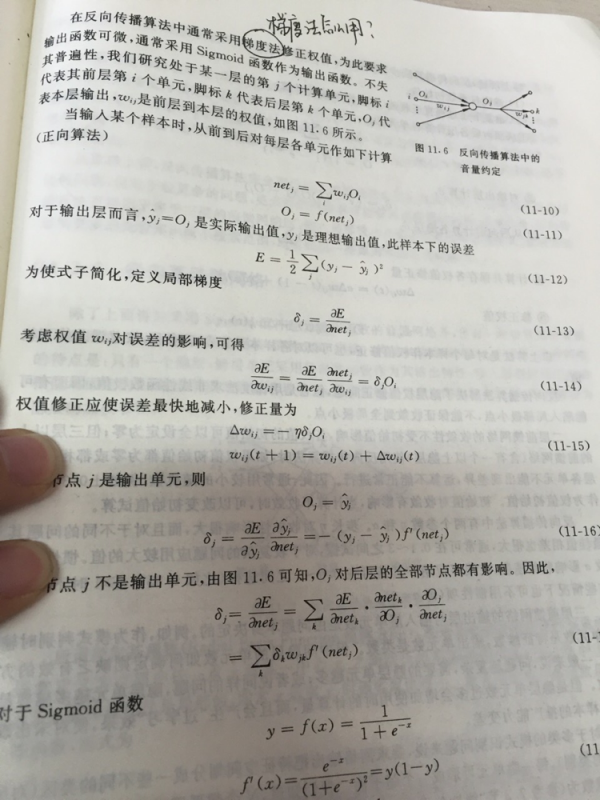 梯度法怎么用?
在反向传播算法中通常采用梯度法修正权值,为此要求
输出函数可微,通常采用 Sigmoid 函数作为输出函数。不失
其普遍性,我们研究处于某一层的第 j 个计算单元,脚标 i
代表其前层第 i 个单元,脚标 k 代表后层第 k 个单元,O_j 代
表本层输出,w_{ij}是前层到本层的权值,如图 11.6 所示。
当输入某个样本时,从前到后对每层各单元作如下计算
(正向算法)
i O_i w_{ij} O_j w_{jk} k
图 11.6 反向传播算法中的
音量约定
net_j = \sum_i w_{ij}O_i (11-10)
O_j = f(net_j) (11-11)
对于输出层而言,ŷ_j=O_j 是实际输出值,y_j 是理想输出值,此样本下的误差
E = \frac{1}{2}\sum_j (y_j − ŷ_j)² (11-12)
为使式子简化,定义局部梯度
δ_j = \frac{∂E}{∂net_j} (11-13)
考虑权值 w_{ij}对误差的影响,可得
\frac{∂E}{∂w_{ij}} = \frac{∂E}{∂net_j} \frac{∂net_j}{∂w_{ij}} = δ_jO_i (11-14)
权值修正应使误差最快地减小,修正量为
Δw_{ij} = − ηδ_jO_i
w_{ij}(t + 1) = w_{ij}(t) + Δw_{ij}(t) (11-15)
节点 j 是输出单元,则
O_j = ŷ_j
δ_j = \frac{∂E}{∂ŷ_j} \frac{∂ŷ_j}{∂net_j} = − (y_j − ŷ_j)f′(net_j) (11-16
节点 j 不是输出单元,由图 11.6 可知,O_j 对后层的全部节点都有影响。因此,
δ_j = \frac{∂E}{∂net_j} = \sum_k \frac{∂E}{∂net_k} · \frac{∂net_k}{∂O_j} · \frac{∂O_j}{∂net_j}
= \sum_k δ_k w_{jk} f′(net_j) (11-1
对于 Sigmoid 函数
y = f(x) = \frac{1}{1 + e^{-x}}
f′(x) = \frac{e^{-x}}{(1+e^{-x})²} = y(1−y) (11